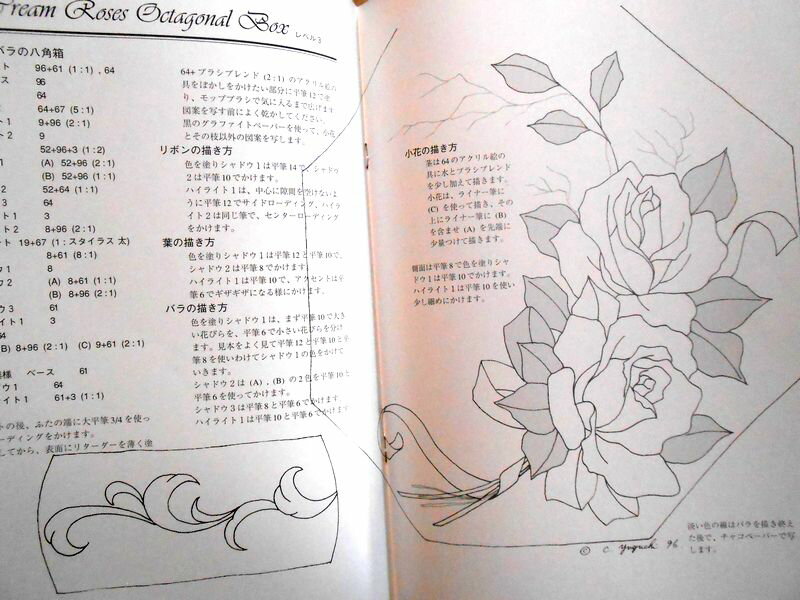 Cream Roses Octagonal Box レベル3
バラの八角箱
96+61 (1:1) , 64
96
64
64+67 (5:1)
1 9+96 (2:1)
2 9
52+96+3 (1:2)
(A) 52+96 (2:1)
(B) 52+96 (1:1)
52+64 (1:1)
3 64
1 3
2 8+96 (2:1)
19+67 (1:スタイラス 太)
8+61 (8:1)
8
(A) 8+61 (1:1)
(B) 8+96 (2:1)
3 61
イト1 3
64
(B) 8+96 (2:1) (C) 9+61 (2:1)
模様 ベース 61
ウ1 64
イト1 61+3 (1:1)
トの後、ふたの端に大平筆3/4を使っ
ーディングをかけます。
してから、表面にリターダーを薄く塗
64+ブラシブレンド (2:1) のアクリル絵の
具をぼかしをかけたい部分に平筆12で塗
り、モップブラシで気に入るまで広げます。
図案を写す前によく乾かしてください。
黒のグラファイトペーパーを使って、小花
とその枝以外の図案を写します。
リボンの描き方
色を塗りシャドウ1は平筆14で、シャドウ
2は平筆10でかけます。
ハイライト1は、中心に隙間を空けないよ
うに平筆12でサイドローディング、ハイラ
イト2は同じ筆で、センターローディング
をかけます。
葉の描き方
色を塗りシャドウ1は平筆12と平筆10で、
シャドウ2は平筆8でかけます。
ハイライト1は平筆10で、アクセントは平
筆6でギザギザになる様にかけます。
バラの描き方
色を塗りシャドウ1は、まず平筆10で大き
い花びらを、平筆6で小さい花びらを分け
ます。見本をよく見て平筆12と平筆10と平
筆8を使いわけてシャドウ1の色をかけて
いきます。
シャドウ2は (A) , (B) の2色を平筆10と
平筆6を使ってかけます。
シャドウ3は平筆8と平筆6でかけます。
ハイライト1は平筆10と平筆6でかけます。
小花の描き方
茎は64のアクリル絵の
具に水とブラシブレンド
を少し加えて描きます。
小花は、ライナー筆に
(C) を使って描き、その
上にライナー筆に (B)
を含ませ (A) を先端に
少量つけて描きます。
側面は平筆8で色を塗りシャ
ドウ1は平筆10でかけます。
ハイライト1は平筆10を使い
少し細めにかけます。
淡い色の線はバラを描き終え
た後で、チャコペーパーで写
します。
© C. Yuguchi 96